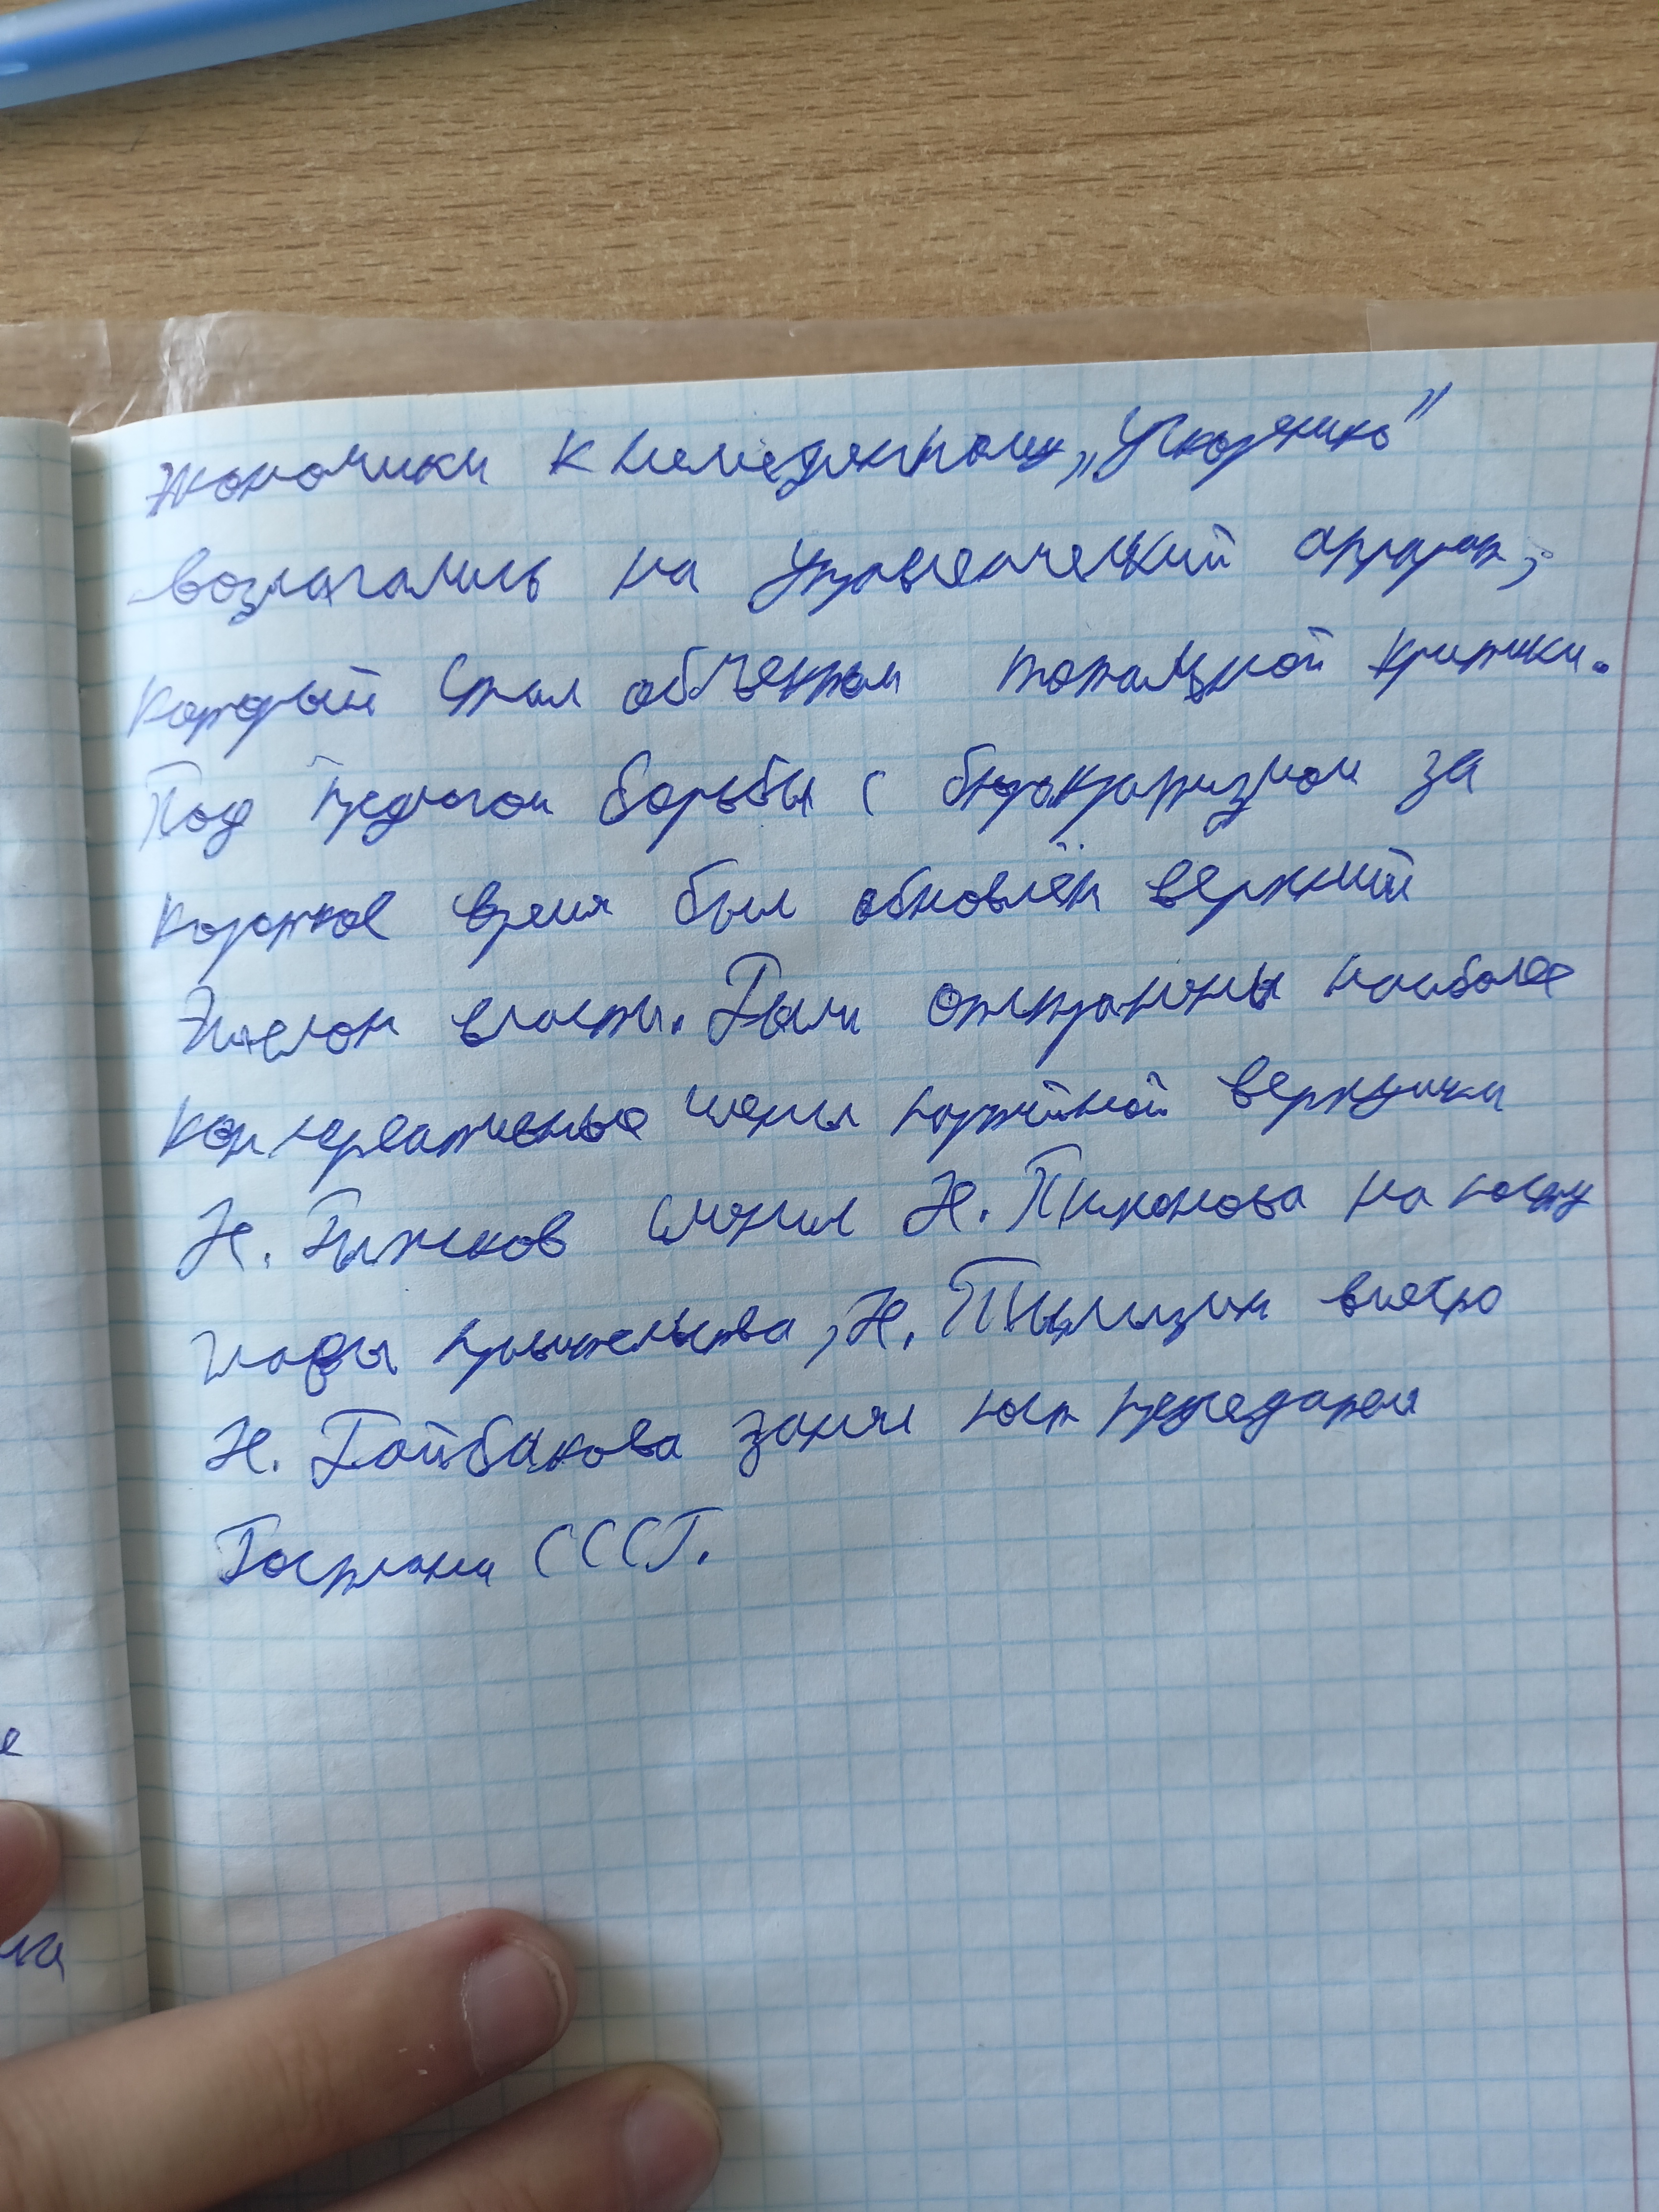 экономики к немедленному „Ускорению"
возлагались на управленческий аппарат,
который стал объектом тотальной критики.
Под предлогом борьбы с бюрократизмом за
короткое время был обновлён верхний
Эшелон власти. Были отстранены наиболее
консервативные члены партийной верхушки
Н. Рыжков сменил Н. Тихонова на посту
главы правительства, Н. Талызин вместо
Н. Байбакова занял пост председателя
Госплана СССР.
е